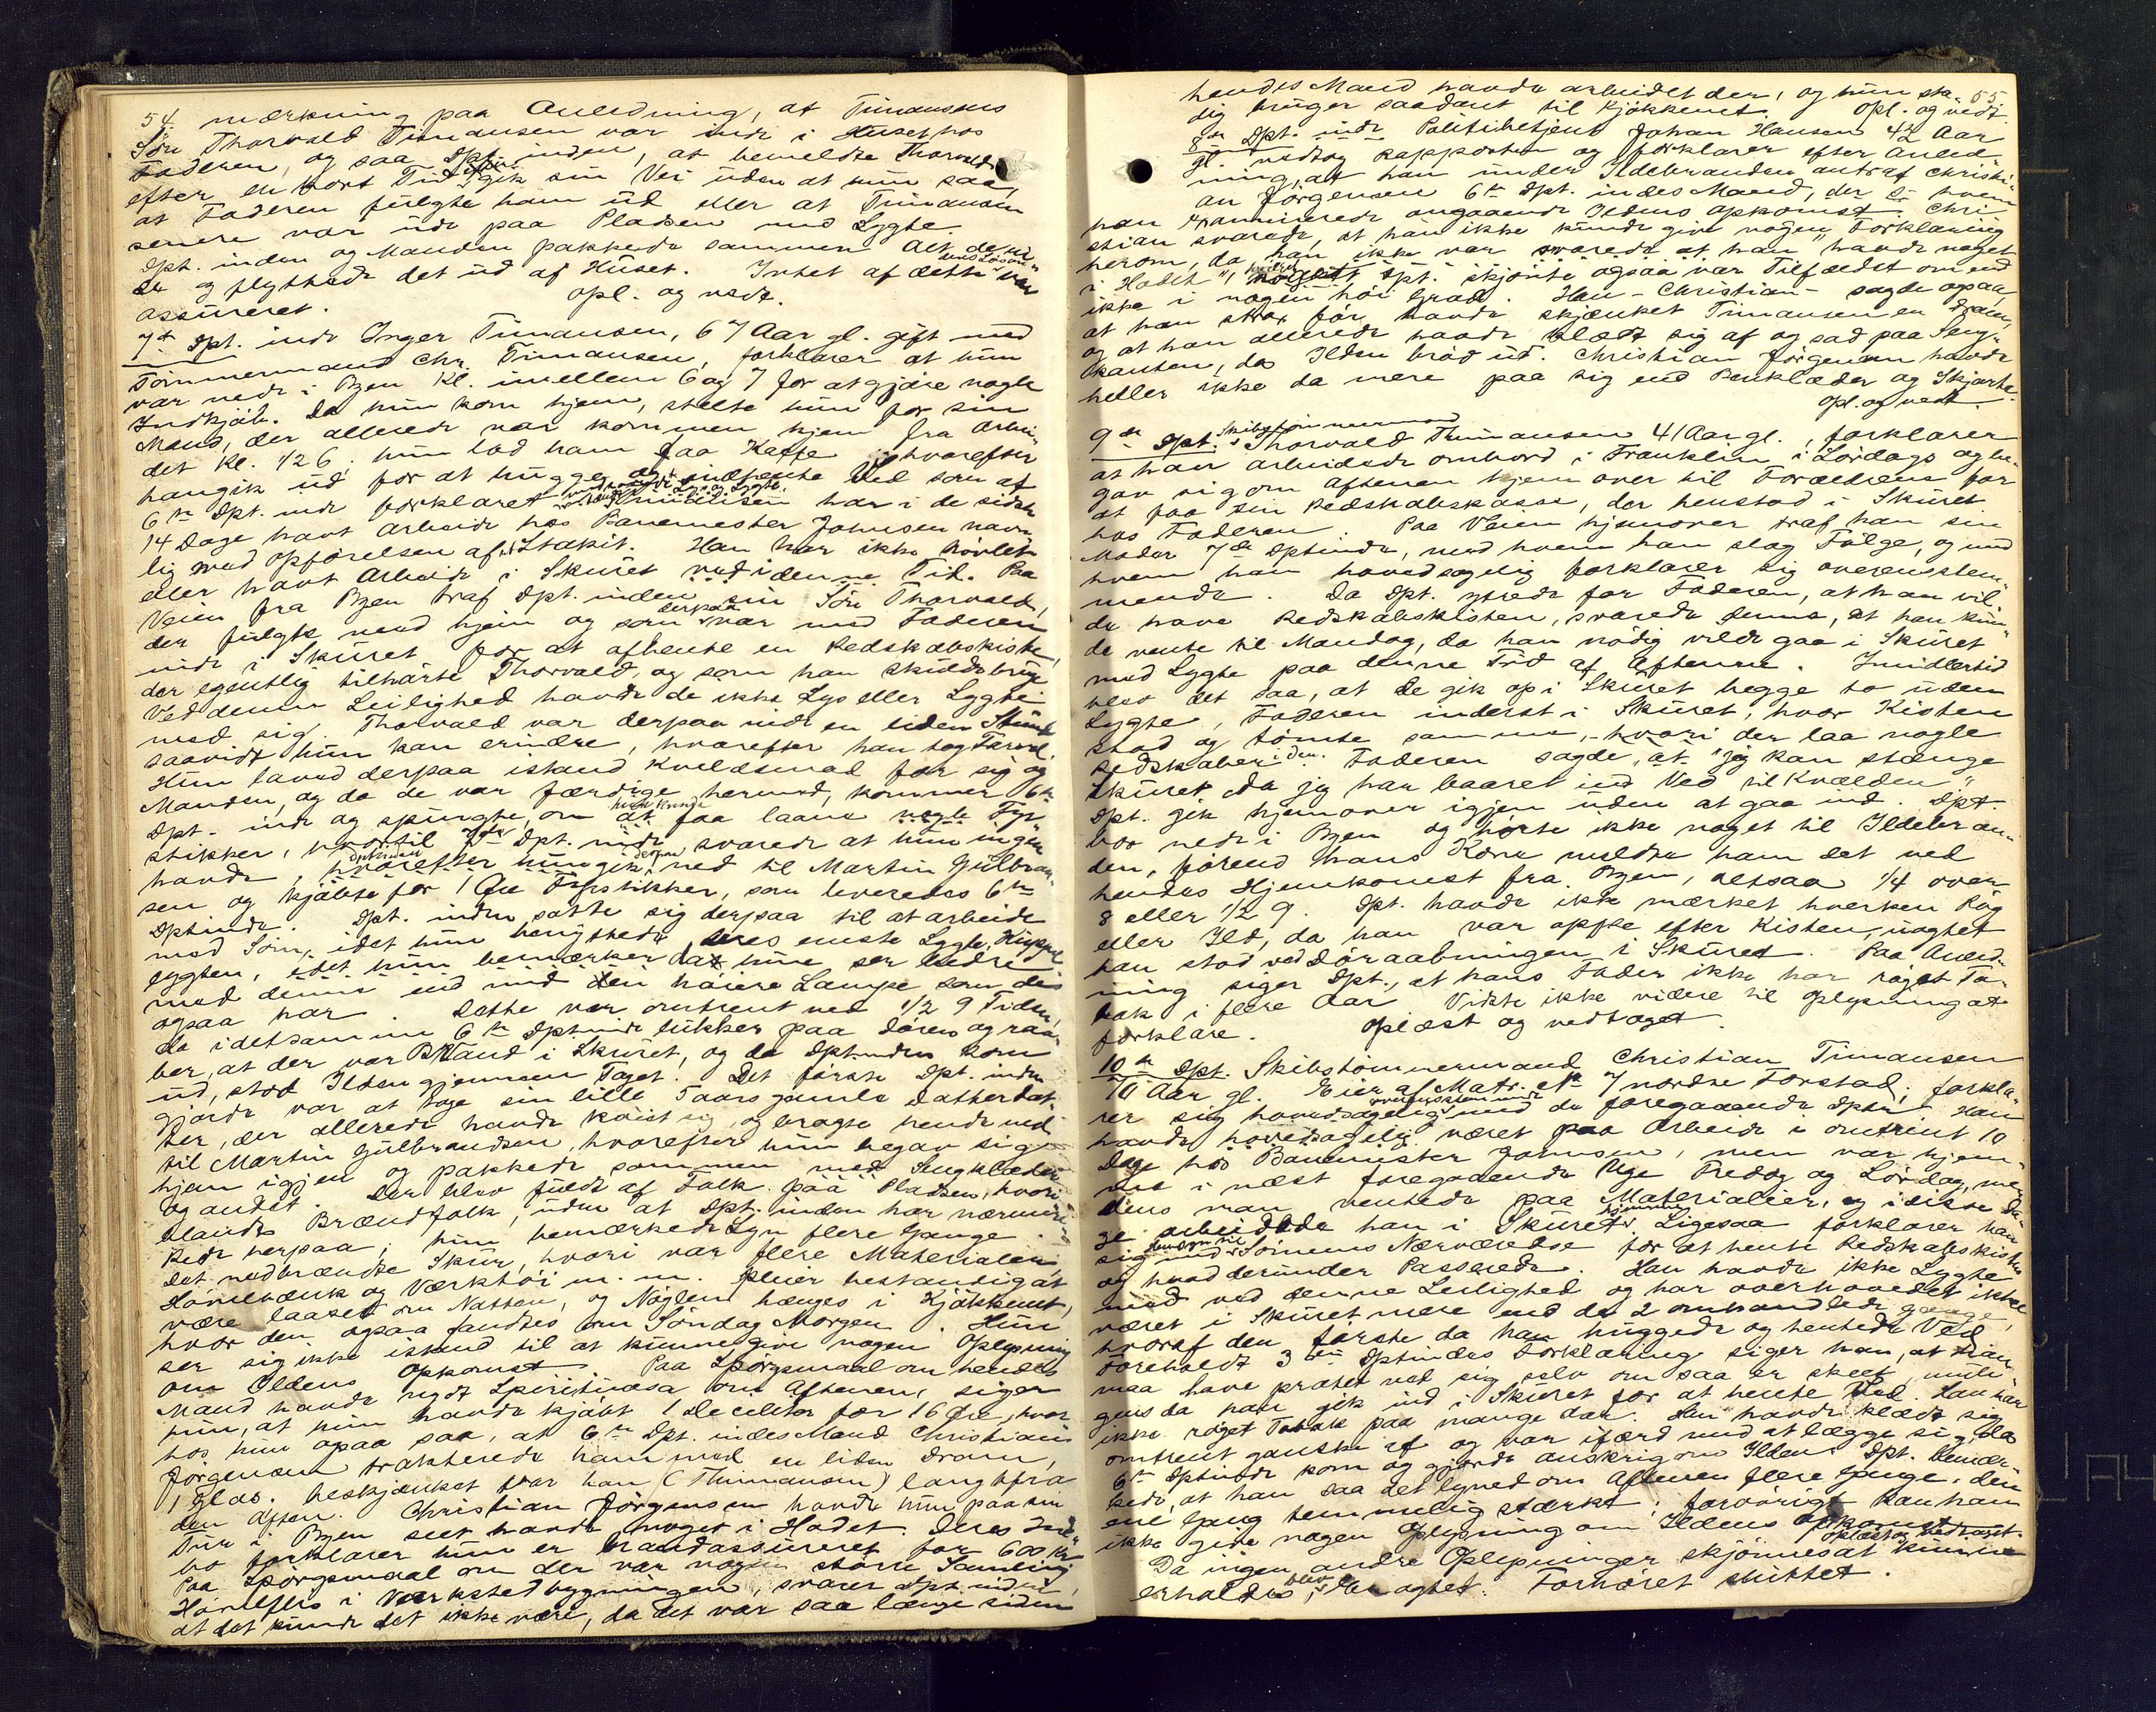 54 mærkning paa Anledning, at Timansens
Søn Thorvald Timansen var inde i Huset hos
Faderen, og saa Dpt. inden, at bemeldte Thorvald
efter en kort Tid gik sin Vei uden at hun saa,
at Faderen fulgte ham ud eller at Timansen
senere var ude paa Pladsen med Lygte.
Dpt. inden og Manden pakkede sammen Alt
og flyttede det ud af Huset. Intet af dette var
assureret. opl. og vedt.
7de Dpt. inde Inger Timansen, 67 Aar gl. gift med
Tömmermand Chr. Timansen, forklarer at hun
var nede i Byen Kl. imellem 6 og 7 for at gjøre nogle
Indkjöb. Da hun kom hjem, stelte hun for sin
Mand, der allerede var kommen hjem fra Arbei-
det Kl. 1/2 6; hun lod ham faa Kaffe hvorefter
han gik ud for at hugge og indhente Ved som af
6te Dpt. inde forklaret har i de sidste
14 Dage havt Arbeide hos Banemester Johnsen navn-
lig med Opförelsen af Stakit. Han har ikke hövlet
eller havt Arbeide i Skuret ved denne Tid. Paa
Veien fra Byen traf Dpt. inden sin Sön Thorvald,
der fulgte med hjem og som derpaa var med Faderen
inde i Skuret for at afhente en Redskabskiste,
der egentlig tilhörte Thorvald, og som han skulde bruge
Ved denne Leilighed havde de ikke Lys eller Lygte
med sig. Thorvald var derpaa inde en liden Stund
saavidt hun kan erindre, hvorefter han tog Farvel.
Hun laved derpaa istand Kveldsmad for sig og
Manden, og da de var færdige hermed, kommer 6te
Dpt. inde og spurgte, om hun kunde faa laane nogle Fyr-
stikker, hvortil 7de Dpt. inde svarede at hun ingen
havde, hvorefter hun gik ned til Martin Gulbran-
sen og kjöbte for 1 Öre Fyrstikker, som leveredes 6te
Dptinde. Dpt. inden satte sig derpaa til at arbeide
med Söm, idet hun benyttede deres eneste Lygte, Kuppel-
lygten, idet hun bemærker at hun ser bedre
med denne end med den höiere Lampe som de
ogsaa har. Dette var omtrent ved 1/2 9 Tiden,
da idetsamme 6te Dptinde lukker paa Dören og raa-
ber, at der var Brand i Skuret, og da Dptinden kom
ud, stod Ilden gjennem Taget. Det förste Dpt. inden
gjorde var at tage sin lille 7 aars gamle Datterdat-
ter, der allerede havde kvist sig, og bragte hende ned
til Martin Gulbrandsen, hvorefter hun begav sig
hjem igjen og pakkede sammen med Sengklæder
og andet. Der blev fuldt af Folk paa Pladsen, hvori-
blandt Brandfolk, uden at Dpt. inden har nærmere
Rede herpaa; hun bemærkede Lyn flere Gange.
Det nedbrændte Skur, hvori var flere Materialier
Hövlebænk og Værktöi m.m. pleier bestandig at
være laaset om Natten, og Nöglen hænges i Kjökkenet,
hvor den ogsaa fandtes om Söndag Morgen. Hun
ser sig ikke istand til at kunne give nogen Oplysning
om Ildens Opkomst. Paa Spörgsmaal om hendes
Mand havde nydt Spirituosa om Aftenen, siger
hun, at hun havde kjöbt 1 Deciliter for 16 Öre, hvor-
hos hun ogsaa saa, at 6te Dpt. indes Mand Christian
Jörgensen trakterede ham med en liden Dram,
1 Glas. beskjænket var han (Thimansen) langtfra
den Aften. Christian Jörgensen havde hun paa sin
Tur i Byen seet havde noget i Hodet. Deres Ind-
bo forklarer hun er brandassureret for 600 Kr
Paa Spörgsmaal om der var nogen större Samling
Hövelflis i Værkstedbygningen, svarer Dpt. inden,
at det kunde det ikke være, da det var saa længe siden
hendes Mand havde arbeidet der, og hun sta- 55
dig bruger saadant til Kjökkenet. Opl. og vedt.
8de Dpt. inde Politibetjent Johan Hansen 42 Aar
gl. vedtog Rapporten og forklarer efter Anled-
ning, at han under Ildebranden antraf Christi-
an Jörgensen 6te Dpt. indes Mand, der hvem
han examinerede angaaende Ildens Opkomst. Chri-
stian svarede, at han ikke kunde give nogen Forklaring
herom, da han ikke var svarede at han "havde noget
i Hodet", hvilket Dpt. skjönte ogsaa var Tilfældet om end
ikke i nogen höi Grad. Han - Christian - sagde ogsaa,
at han strax för havde skjænket Timansen en Dram,
og at han allerede havde klædt sig af og sad paa Seng-
kanten, da Ilden bröd ud. Christian Jörgensen havde
heller ikke da mere paa sig end Benklæder og Skjorte.
Opl. og vedt.
9de Dpt. Skibstömmermand Thorvald Thimansen 41 Aar gl., forklarer
at han arbeidede ombord i Franklin i Lördags og be-
gav sig om Aftenen hjem over til Forældrene for
at faa sin Redskabskasse, der henstod i Skuret
hos Faderen. Paa Veien hjemover traf han sin
Moder 7de Dptinde, med hvem han slog Fölge, og med
hvem han hovedsagelig forklarer sig overensstem-
mende. Da Dpt. ytrede for Faderen, at han vil-
de have Redskabskisten, svarede denne, at han kun-
de vente til Mandag, da han nödig vilde gaa i Skuret
med Lygte paa denne Tid af Aftenen. Imidlertid
blev det saa, at de gik op i Skuret begge to uden
Lygte, Faderen inderst i Skuret, hvor Kisten
stod og tömte samme, - hvori der laa nogle
Redskaber i den. Faderen sagde, at "jeg kan stænge
Skuret da jeg har baaret ind Ved til Kvelden"
Dpt. gik hjemover igjen uden at gaa ind. Dpt.
bor nede i Byen og hörte ikke noget til Ildebran-
den, förend hans Kone meldte ham det ved
hendes Hjemkomst fra Byen, altsaa 1/4 over
8 eller 1/2 9. Dpt. havde ikke mærket hverken Rög
eller Ild, da han var oppe efter Kisten, uagtet
han stod ved Döraabningen i Skuret. Paa Anled-
ning siger Dpt., at hans Fader ikke har röget To-
bak i flere Aar. Vidste ikke videre til Oplysning at
forklare. Oplæst og vedtaget.
10de Dpt. Skibstömmermand Christian Timansen
70 Aar gl. Eier af Matr. No 7 nordre Forstad; forkla-
rer sig hovedsagelig overensstemmende med de foregaaende Dpter. Han
havde hovedsagelig været paa Arbeide i omtrent 10
Dage hos Banemester Johnsen, men var hjem-
me i næst foregaaende Uge Fredag og Lördag, me-
dens man ventede paa Materialier, og i disse Da-
ge arbeidede han i Skuret hjemme. Ligesaa forklarer han
sig med Hensyn til Sönnens Nærværelse for at hente Redskabskisten
og hvad derunder Passerede. Han havde ikke Lygte
med ved denne Leilighed og har overhovedet ikke
været i Skuret mere end de 2 omhandlede Gange,
hvoraf den förste da han huggede og hentede Ved.
Foreholdt 3die Dptindes Forklaring siger han, at han
maa have pratet ved sig selv om saa er skeet, muli-
gens da han gik ind i Skuret for at hente Ved. Han har
ikke röget Tobak paa mange Aar. Han havde klædt sig
omtrent ganske af og var ifærd med at lægge sig, da
6te Dptinde kom og gjorde Anskrig om Ilden. Dpt. bemær-
kede, at han saa det lyned om Aftenen flere Gange, den
ene Gang temmelig stærkt; forövrigt kan han
ikke give nogen Oplysning om Ildens Opkomst. Oplæst og vedtaget.
Da ingen andre Oplysninger skjönnes at kunne
erholdes, blev Forhöret sluttet.